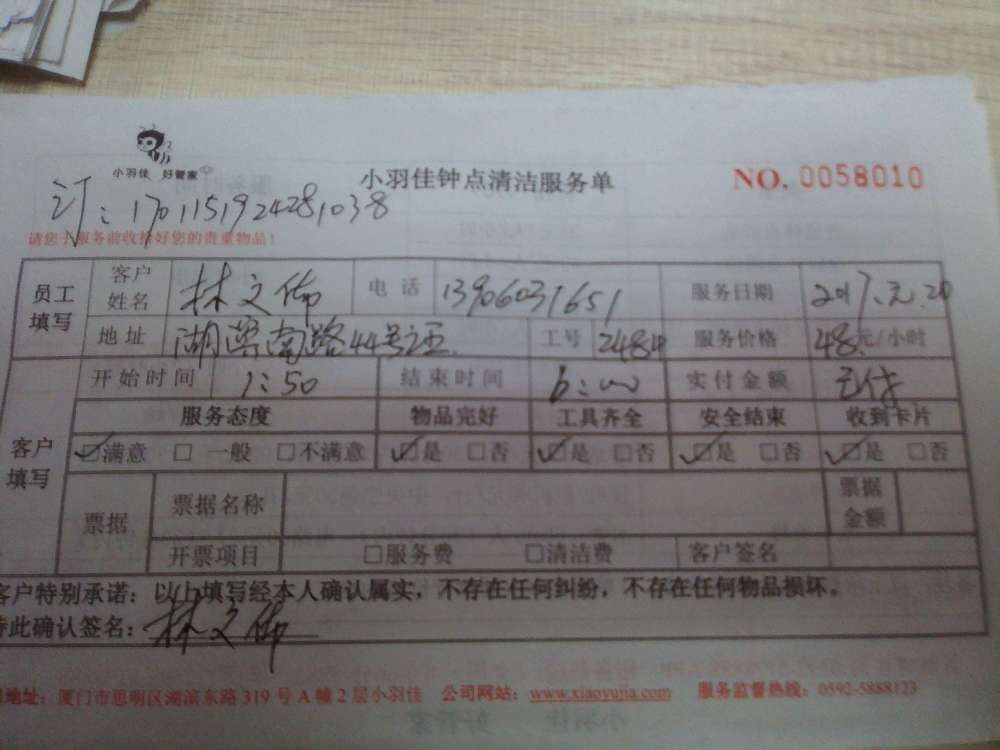 小羽佳 好管家
小羽佳钟点清洁服务单
NO. 0058010
订:1701151924281038
请您于服务前收拾好您的贵重物品!
员工填写 客户姓名 林文佈 电话 13906031651 服务日期 2017.元.20
地址 湖滨南路44号之五 工号 2484 服务价格 48元/小时
开始时间 1:50 结束时间 6:00 实付金额 已付
客户填写 服务态度 物品完好 工具齐全 安全结束 收到卡片
☑满意 □一般 □不满意 ☑是 □否 ☑是 □否 ☑是 □否 ☑是 □否
票据 票据名称 票据金额
开票项目 □服务费 □清洁费 客户签名
客户特别承诺:以上填写经本人确认属实,不存在任何纠纷,不存在任何物品损坏。
特此确认签名:林文佈
地址:厦门市思明区湖滨东路319号A幢2层小羽佳 公司网站:www.xiaoyujia.com 服务监督热线:0592-5888123